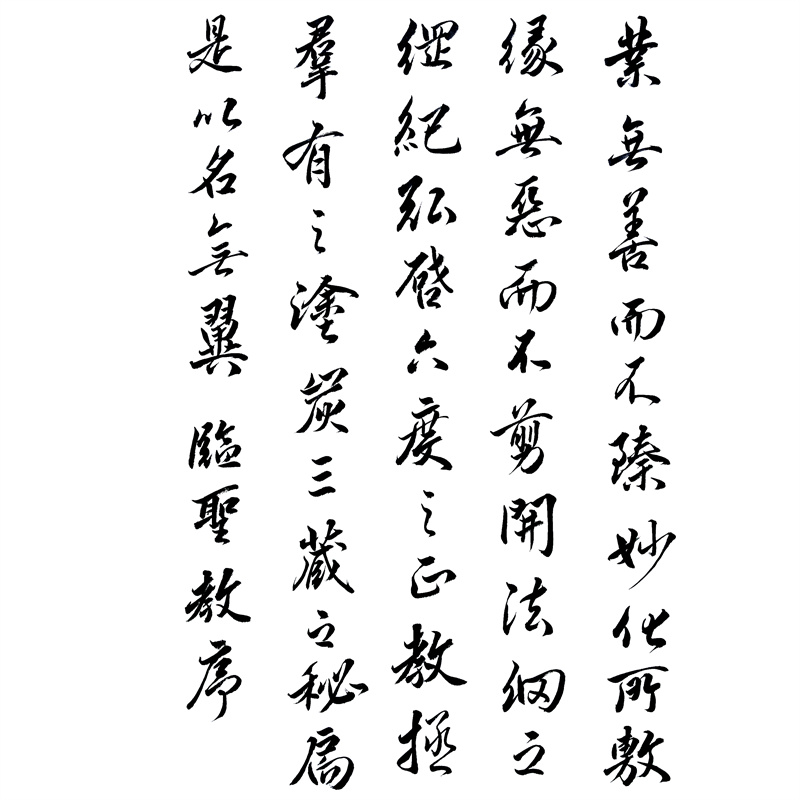 業無善而不臻妙化所敷
緣無惡而不剪開法網之
綱紀弘啓六度之正教拯
羣有之塗炭三藏之秘扃
是以名無翼 臨聖教序